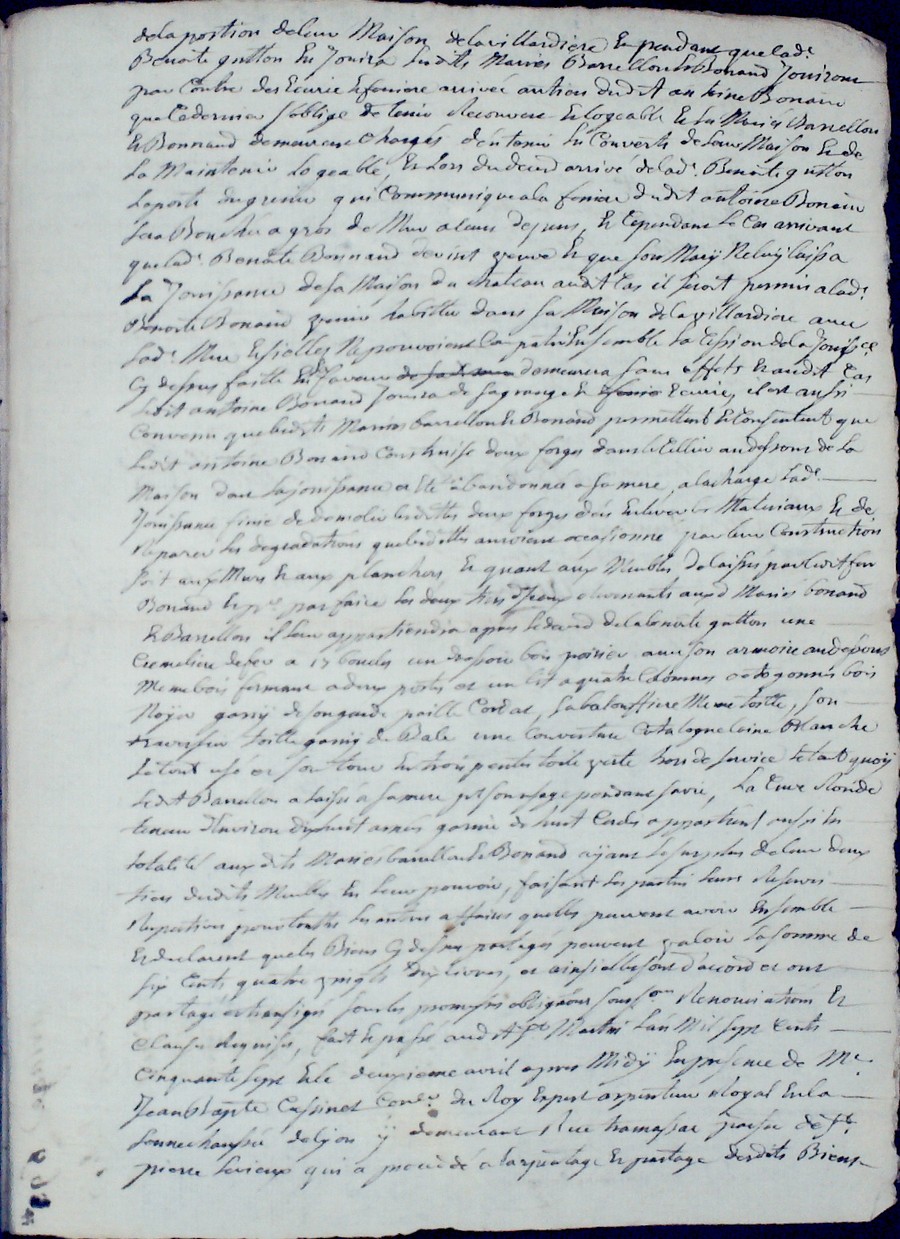 de la portion de leur Maison de la villardiere Et pendant que lad.
Benoite gutton En Jouira Lesdits Mariés Barrellon Et Bonand Jouiront
par Contre des Ecurie Et feniere arrivée au tiers dudit antoine Bonand
que Ce dernier s'oblige de tenir Recouvert Et logeable Et les Mariés Barrellon
Et Bonnand demeurent Chargés d'Entretenir les Couverts de leur Maison Et de
La Maintenir Logeable, Et Lors du deced arrivé de lad. Benoite gutton
La porte du grenier qui Communique a la feniere dudit antoine Bonand
Sera Bouchée a gros de Mur a leurs depens, Et Cependant Le Cas arrivant
que lad. Benoite Bonnand devint veuve Et que son Mary Ne luy laissa
La Jouissance de sa Maison du chateau audit Cas il seroit permis a lad.
Benoite Bonand veuve habitter dans sa Maison de la villardiere avec
lad. Mere Et si elles Ne pouvoient Compatir Ensemble La Cession de la Jouissce.
Cy dessus faitte En sa faveur demeurera sans effets Et audit Cas
Ledit antoine Bonand Jouira de sa grange Et Ecurie, il est aussi
Convenu que lesdits Mariés barrellon Et Bonand permettent Et Consentent que
Ledit antoine Bonand Construise deux forges dans le Cellier au dessous de La
Maison dont la jouissance a Eté abandonnée a sa mere, a la charge lad.
Jouissance finie de demolir lesdittes deux forges d'en Enlever les Materiaux Et de
Reparer les degradations que lesdittes auroient occasionné par leur Construction
soit aux Murs Et aux planchers, Et quant aux Meubles delaissés par ledit feu
Bonand Et pr. parfaire les deux tiers d'Iceux obvenants auxd. Mariés bonand
Et Barrellon il leur appartiendra apres le deced de la benoite gutton une
Cremeliere de fer a 17 boucles un dressoir bois poirier avec son armoire au dessous
Meme bois fermant a deux portes et un lit a quatre Colonnes octogonnes bois
Noyer garny de son garde paille Cordat, sa balouffiere Meme toille, son
traversin toille garny de Bale une Couverture Catalogne laine Blanche
Le tout usé et son tour de trois pentes toile verte hors de service le tout quoy
Ledit Barrellon a laissé a sa mere pr. son usage pendant sa vie, La Cuve Ronde
teneur d'Environ dixhuit anées garnie de huit Cercles appartient aussi En
totalité auxdits Mariés barrellon Et Bonand ayant le surplus de leur deux
tiers desdits Meubles En leur pouvoir, faisant les parties leurs Reserves
Respectives pour touttes les autres affaires quelles peuvent avoir Ensemble
Et declarent que les Biens Cy dessus partagés peuvent valoir la somme de
six Cents quatre vingt dix livres, et ainsi elles sont d'accord et ont
partagé et transigé sous les promesses obligaons soussons Renonciations Et
Clauses Requises, fait Et passé audit St. Martin L'an Mil sept Cents
Cinquante sept Et le deuxieme avril apres Midÿ En presence de Me.
Jean Bapte Cassinet du Roy Expert arpenteur Royal En la
sennechaussée de lyon ÿ demeurant Rue tramassac paroisse de St.
pierre Le vieux qui a procédé a l'arpentage Et partage desdits Biens